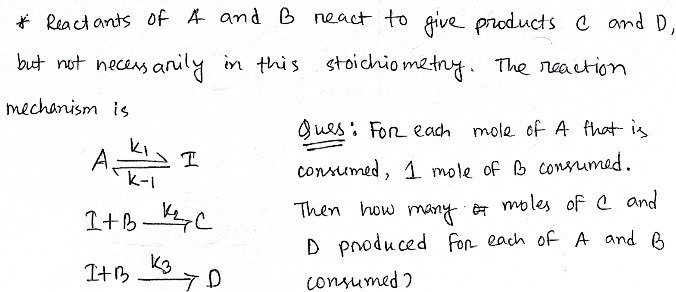 * Reactants of A and B react to give products C and D,
but not necessarily in this stoichiometry. The reaction
mechanism is
A ⇌ I
k1
k-1
I+B →k2 C
I+B →k3 D
Ques: For each mole of A that is
consumed, 1 mole of B consumed.
Then how many moles of C and
D produced for each of A and B
consumed?